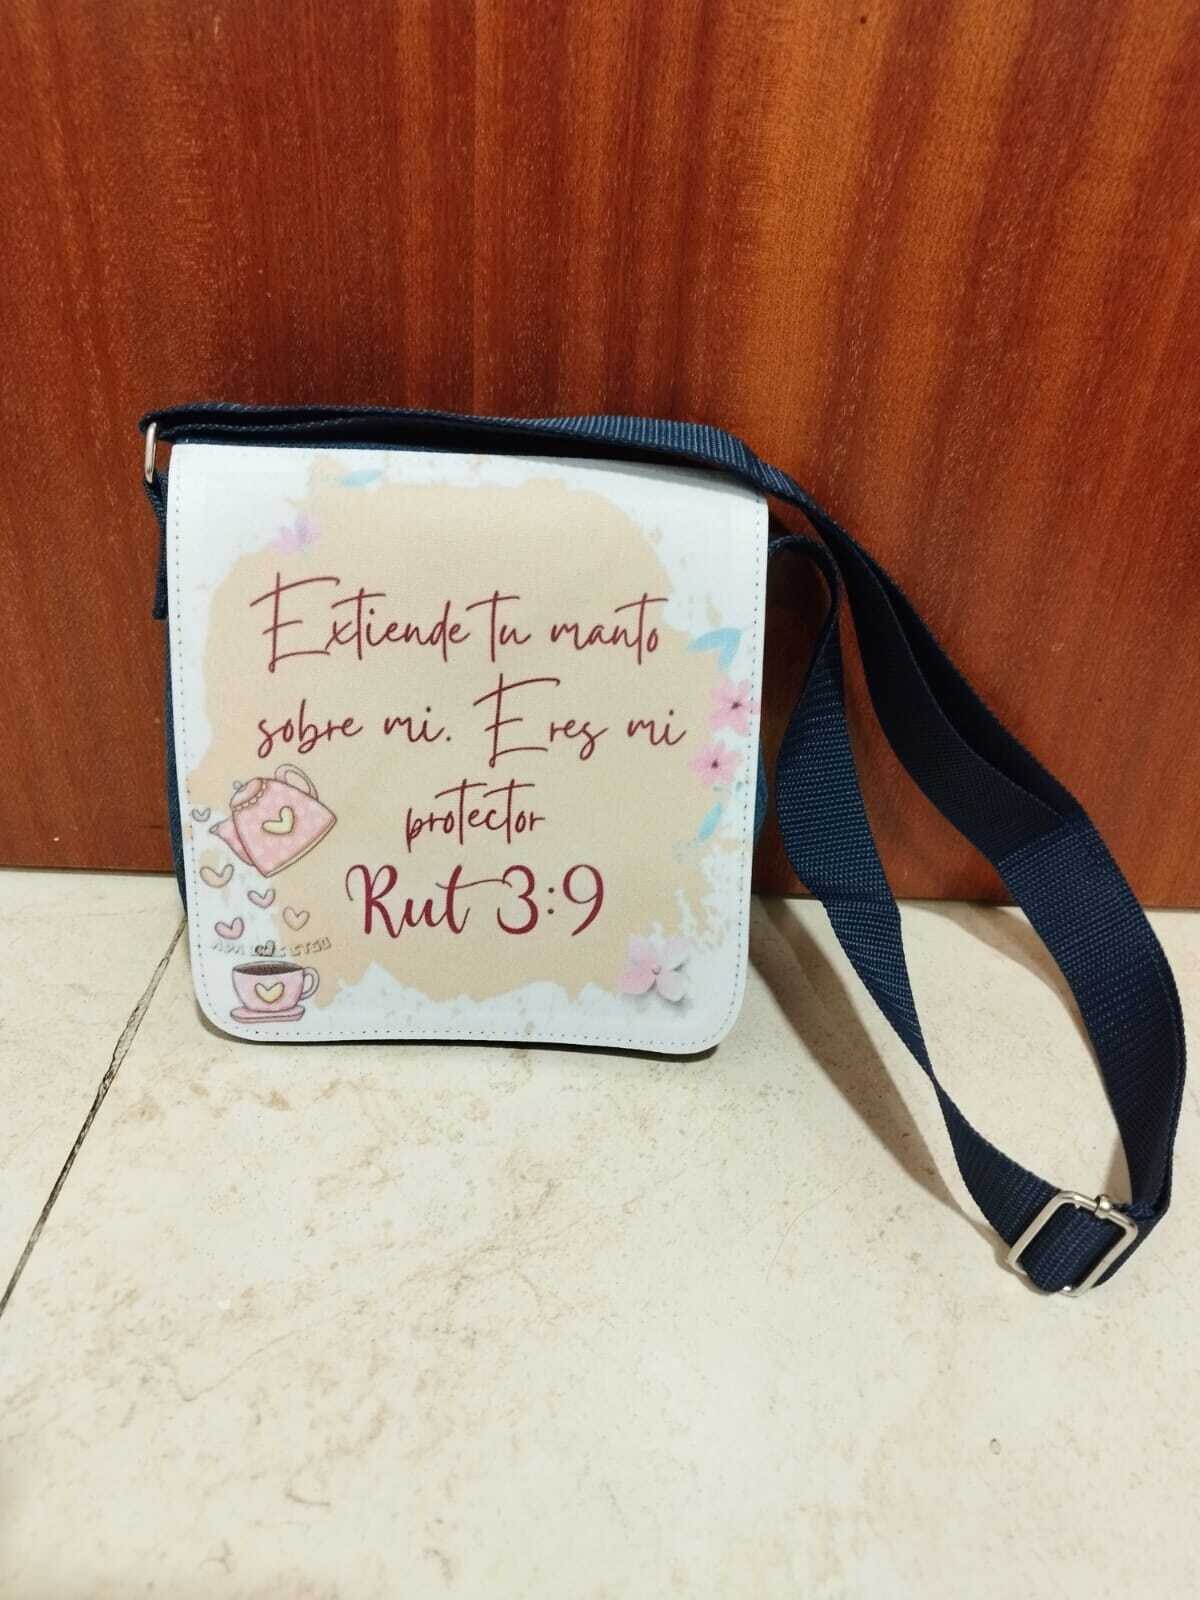 Extiende tu manto
sobre mi. Eres mi
protector
Rut 3:9